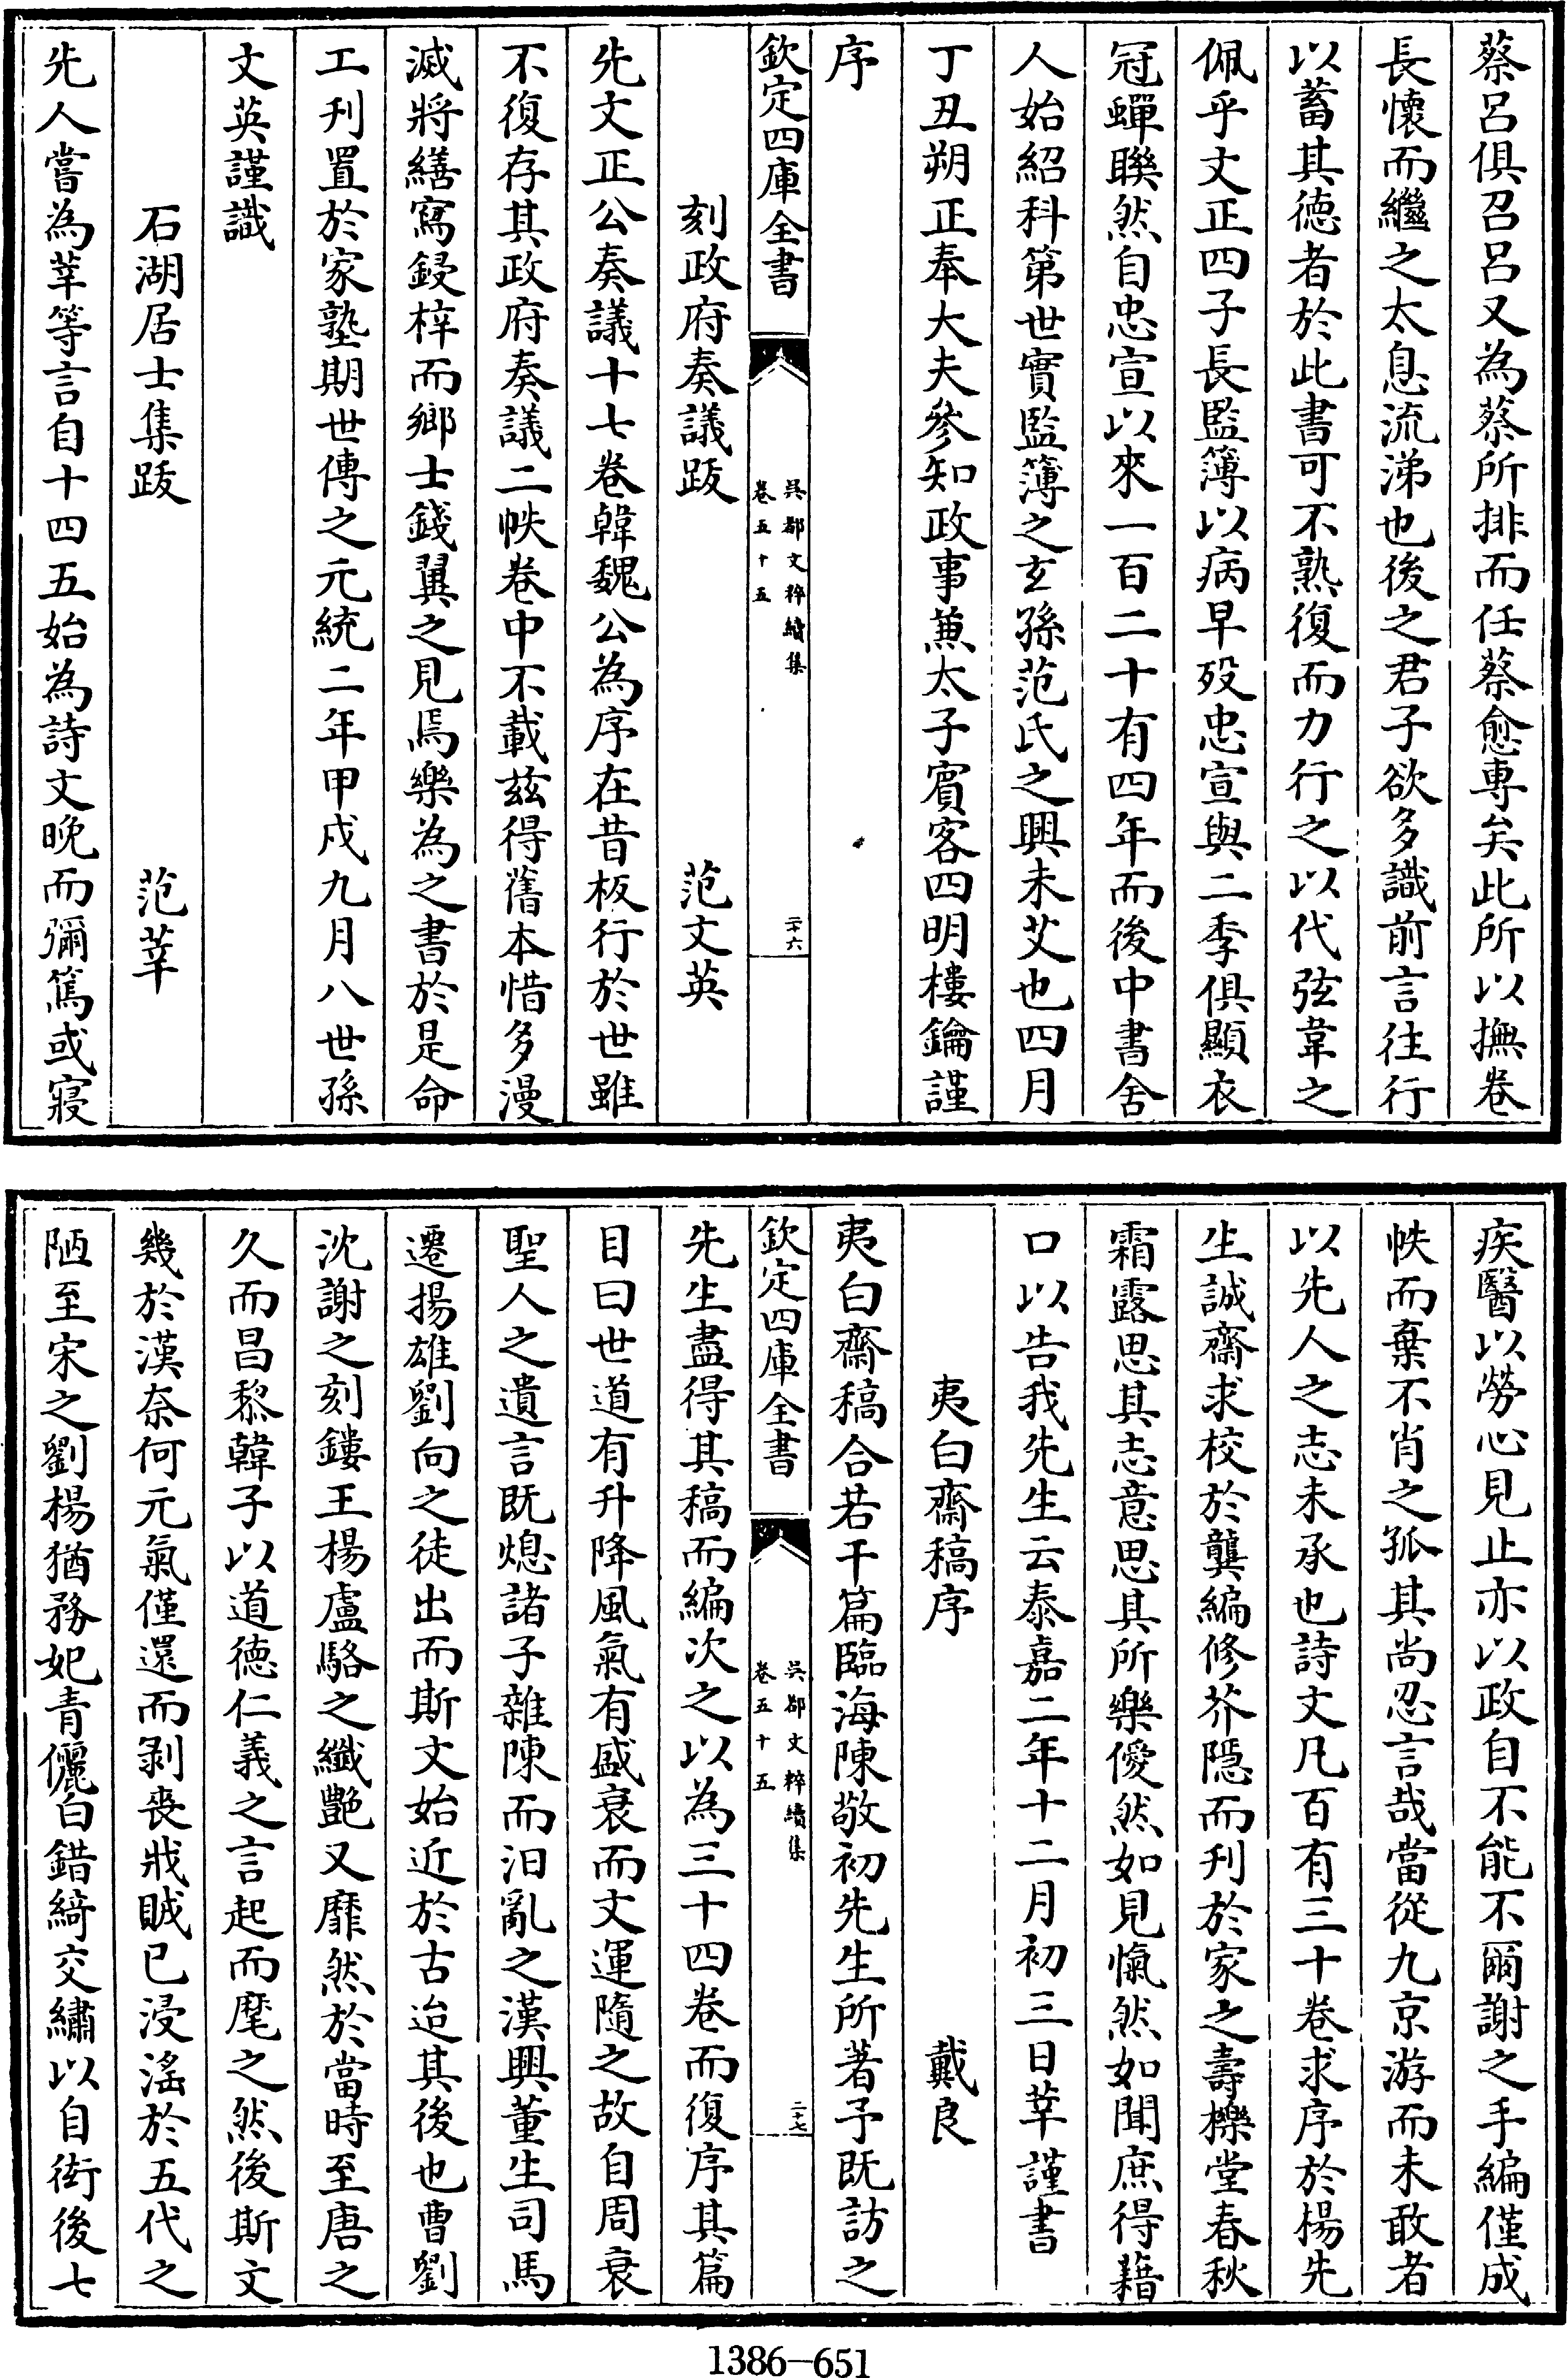 蔡呂俱召呂又為蔡所排而任蔡愈專矣此所以撫卷
長懷而繼之太息流涕也後之君子欲多識前言往行
以蓄其德者於此書可不熟復而力行之以代弦韋之
佩乎文正四子長監簿以病早歿忠宣與二季俱顯衣
冠蟬聯然自忠宣以來一百二十有四年而後中書舍
人始紹科第世實監簿之玄孫范氏之興未艾也四月
丁丑朔正奉大夫參知政事兼太子賓客四明樓鑰謹
序
欽定四庫全書
吳郡文粹續集
卷五十五
二十六
刻政府奏議跋 范文英
先文正公奏議十七卷韓魏公為序在昔板行於世雖
不復存其政府奏議二帙卷中不載兹得舊本惜多漫
滅將繕寫鋟梓而鄉士錢翼之見焉樂為之書於是命
工刋置於家塾期世傳之元統二年甲戌九月八世孫
文英謹識
石湖居士集跋 范莘
先人嘗為莘等言自十四五始為詩文晚而彌篤或寢
疾醫以勞心見止亦以政自不能不爾謝之手編僅成
帙而棄不肖之孤其尚忍言哉當從九京游而未敢者
以先人之志未承也詩文凡百有三十卷求序於楊先
生誠齋求校於龔編修芥隱而刋於家之壽櫟堂春秋
霜露思其志意思其所樂僾然如見愾然如聞庶得藉
口以告我先生云泰嘉二年十二月初三日莘謹書
夷白齋稿序 戴良
夷白齋稿合若干篇臨海陳敬初先生所著予既訪之
欽定四庫全書
吳郡文粹續集
卷五十五
二十七
先生盡得其稿而編次之以為三十四卷而復序其篇
目曰世道有升降風氣有盛衰而文運隨之故自周衰
聖人之遺言既熄諸子雜陳而汩亂之漢興董生司馬
遷揚雄劉向之徒出而斯文始近於古迨其後也曹劉
沈謝之刻鏤王楊盧駱之纖艷又靡然於當時至唐之
久而昌黎韓子以道德仁義之言起而麾之然後斯文
幾於漢奈何元氣僅還而剥喪戕賊已浸淫於五代之
陋至宋之劉楊猶務妃青儷白錯綺交繡以自衒後七
1386-651